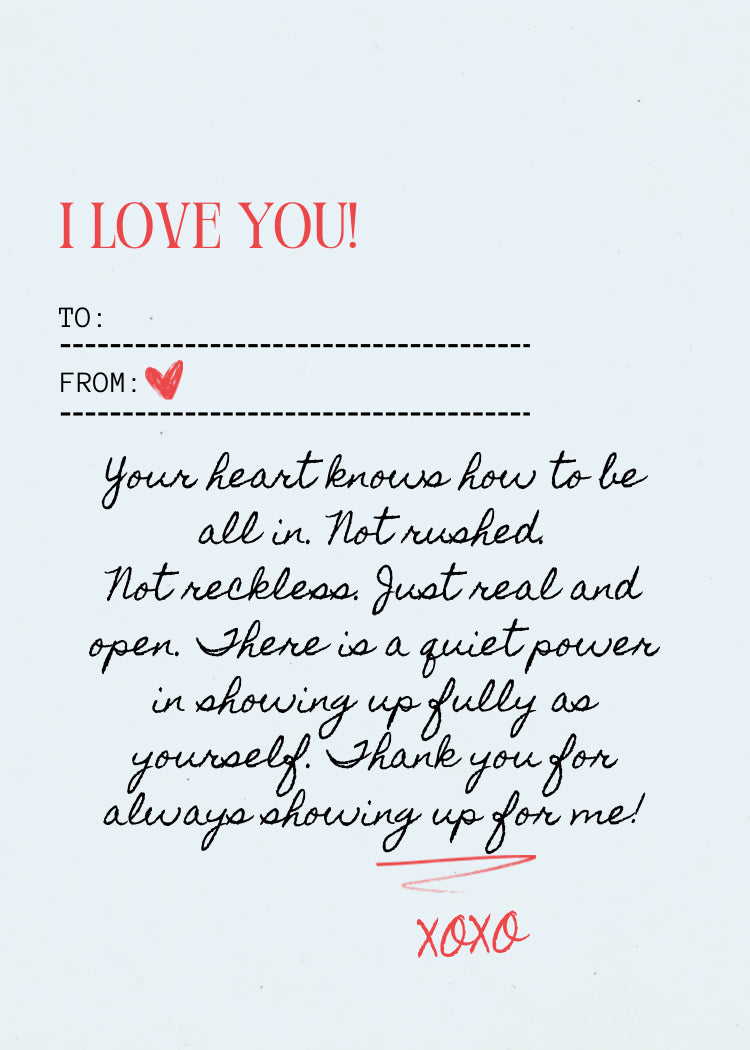 I LOVE YOU!
TO:
FROM:
Your heart knows how to be
all in. Not rushed.
Not reckless. Just real and
open. There is a quiet power
in showing up fully as
yourself. Thank you for
always showing up for me!
XOXO